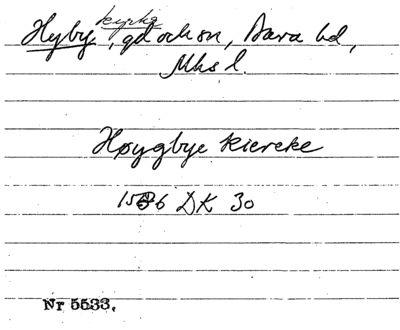 kyrka
Hyby, gd och sn, Bara hd,
Mhs l.
Høygbye kiercke
DK 30
Nr 5533.